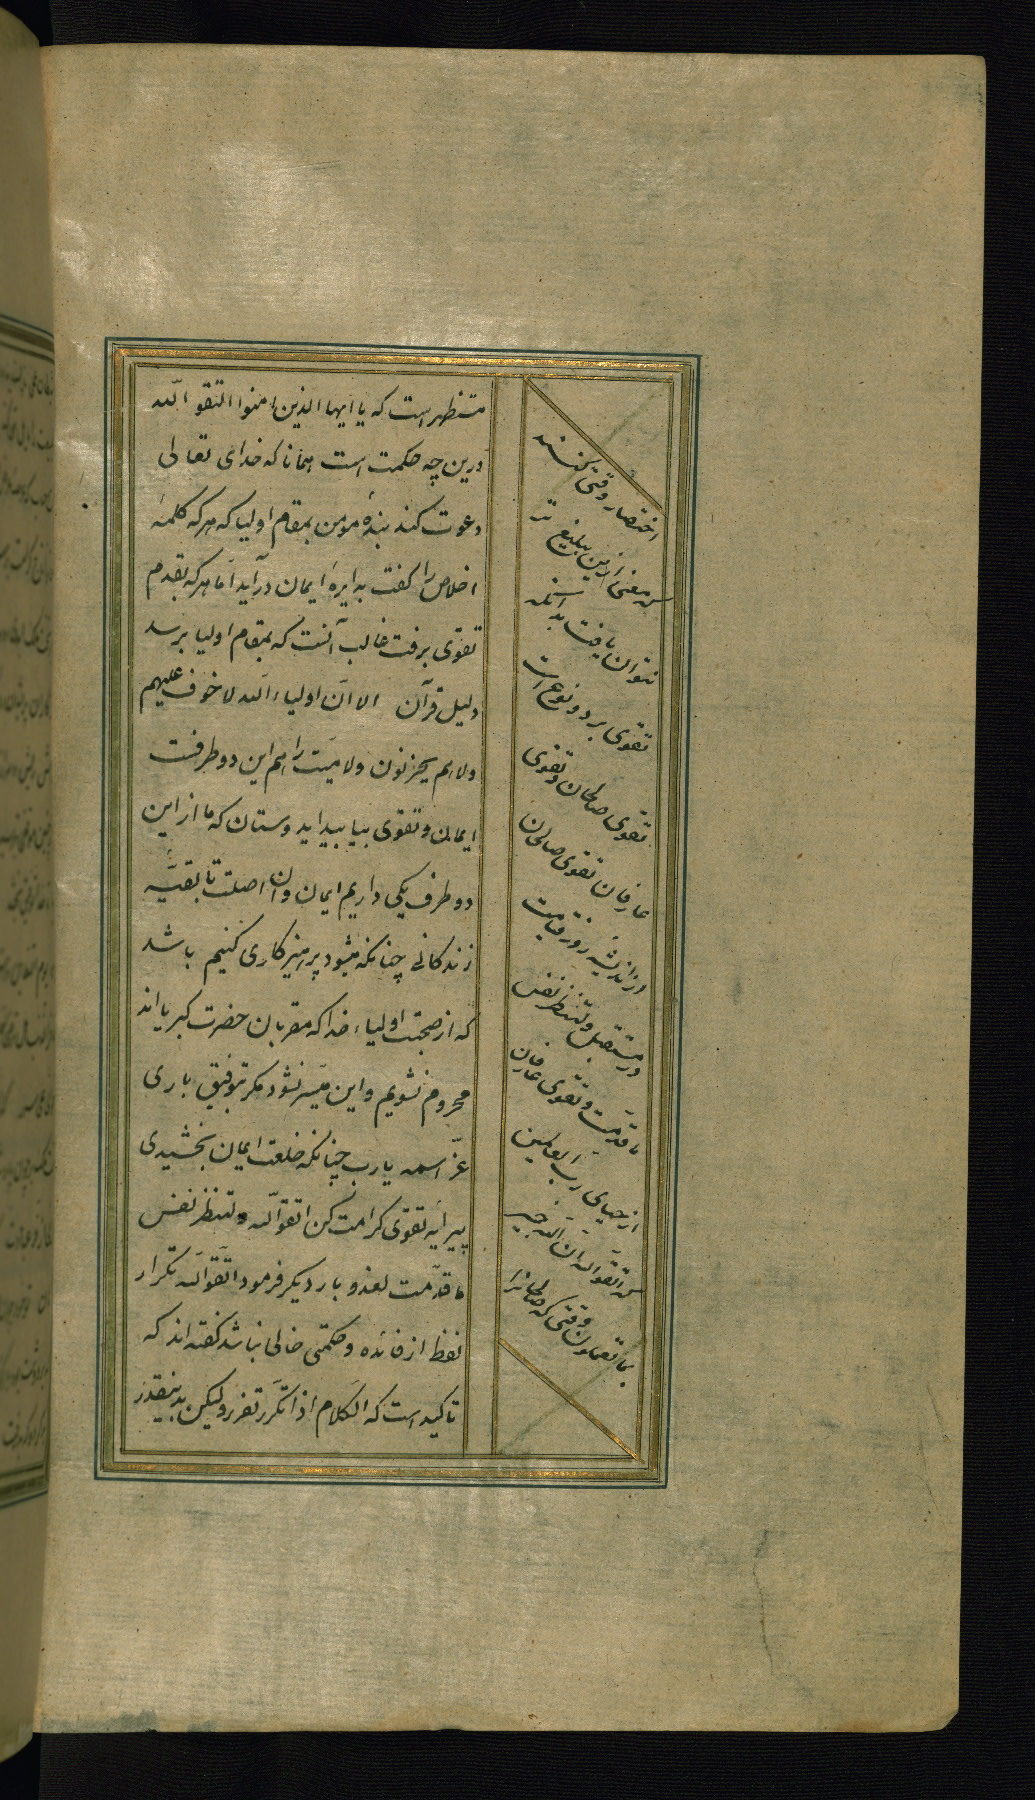 منتظر است که یا ایها الذین امنوا اتقوا الله
درین چه حکمت است همانا که خدای تعالی
دعوت کند بندهٔ مومن بمقام اولیا که هر که کلمهٔ
اخلاص را گفت بدایرهٔ ایمان درآید اما هر که بقدم
تقوی برفت غالب آنست که بمقام اولیا برسد
دلیل قرآن الا ان اولیاء الله لا خوف علیهم
ولا هم یحزنون ولایت را هم این دو طرفست
ایمان و تقوی بیایید ای دوستان که ما از این
دو طرف یکی داریم ایمان و آن اصلت تا بقیهٔ
زندکانی چنانکه میشود پرهیزکاری کنیم باشد
که از صحبت اولیاء خدا که مقربان حضرت کبریااند
محروم نشویم و این میسر نشود مکر بتوفیق باری
عز اسمه یا رب چنانکه خلعت ایمان بخشیدی
پیرایه تقوی کرامت کن اتقوا الله ولتنظر نفس
ما قدمت لغد و بار دیکر فرمود اتقوا الله تکرار
لفظ از فائده و حکمتی خالی نباشد کفته اند که
تاکید است که الکلام اذا تکرر تقرر ولیکن بدینقدر
اختصار وقتی کنند
که معنی ازین بلیغ تر
نتوان یافت بدانکه
تقوی بر دو نوع است
تقوی صالحان و تقوی
عارفان تقوی صالحان
از اندیشهٔ روز قیامت
در مستقبل ولتنظر نفس
ما قدمت و تقوی عارفان
از حیای رب العالمین
که اتقوا الله ان الله خبیر
بما تعملون وقتی که صالحانرا